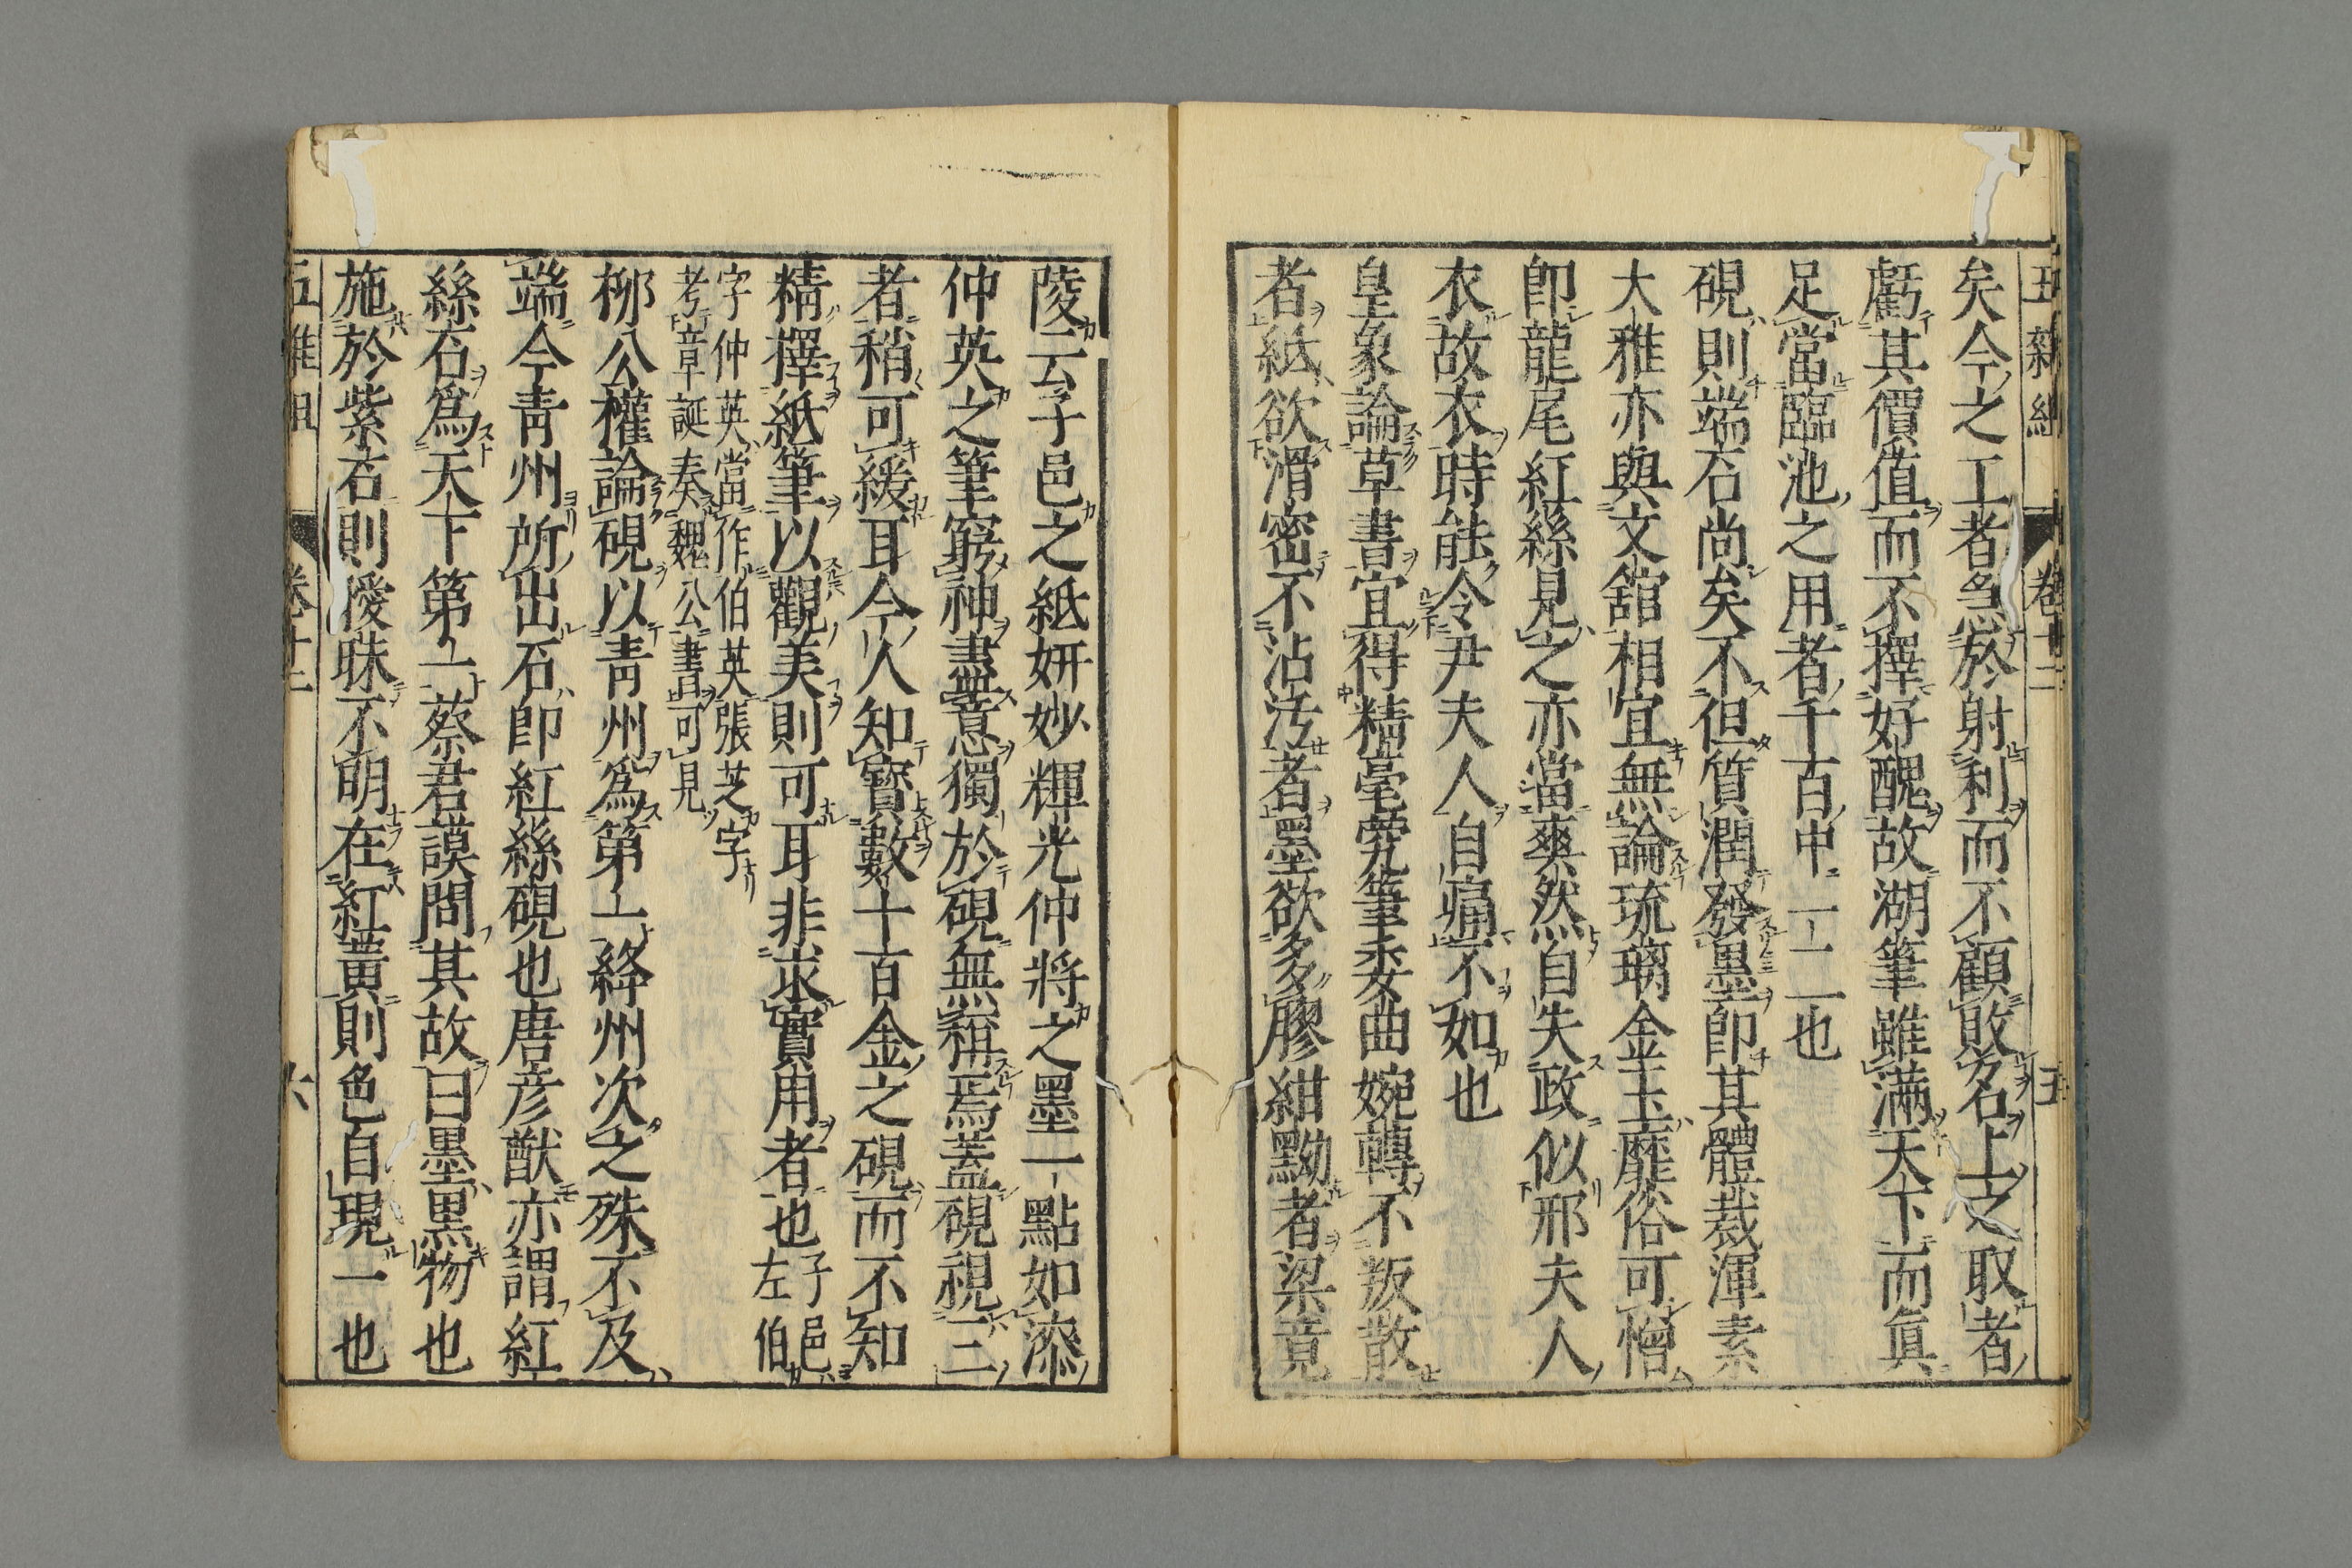 五雜組 卷十二 五
矣今之工者急於射利而不顧敗名上之取者
虧其價值而不擇好醜故湖筆雖滿天下而眞
足當臨池之用者千百中一二也
硯則端石尚矣不但質潤發墨卽其體裁渾素
大雅亦與文舘相宜無論琉璃金玉靡俗可憎
卽龍尾紅絲見之亦當爽然自失政似邢夫人
衣故衣時能令尹夫人自痛不如也
皇象論草書宜得精毫㲪筆委曲婉轉不叛散
者紙欲滑密不沾汚者墨欲多膠紺黝者梁竟
陵云子邑之紙妍妙輝光仲將之墨一點如漆
仲英之筆窮神盡意獨於硯無稱焉蓋硯視二
者稍可緩耳今人知寳數十百金之硯而不知
精擇紙筆以觀美則可耳非求實用者也子邑左伯
字仲英英當作伯英張芝字
考章誕奏魏公書可見
栁公權論硯以青州爲第一絳州次之殊不及
端今青州所出石卽紅絲硯也唐彦猷亦謂紅
絲石爲天下第一蔡君謨問其故曰墨黒物也
施於紫石則曖昧不明在紅黃則色自現一也
五雜組 卷十二 六